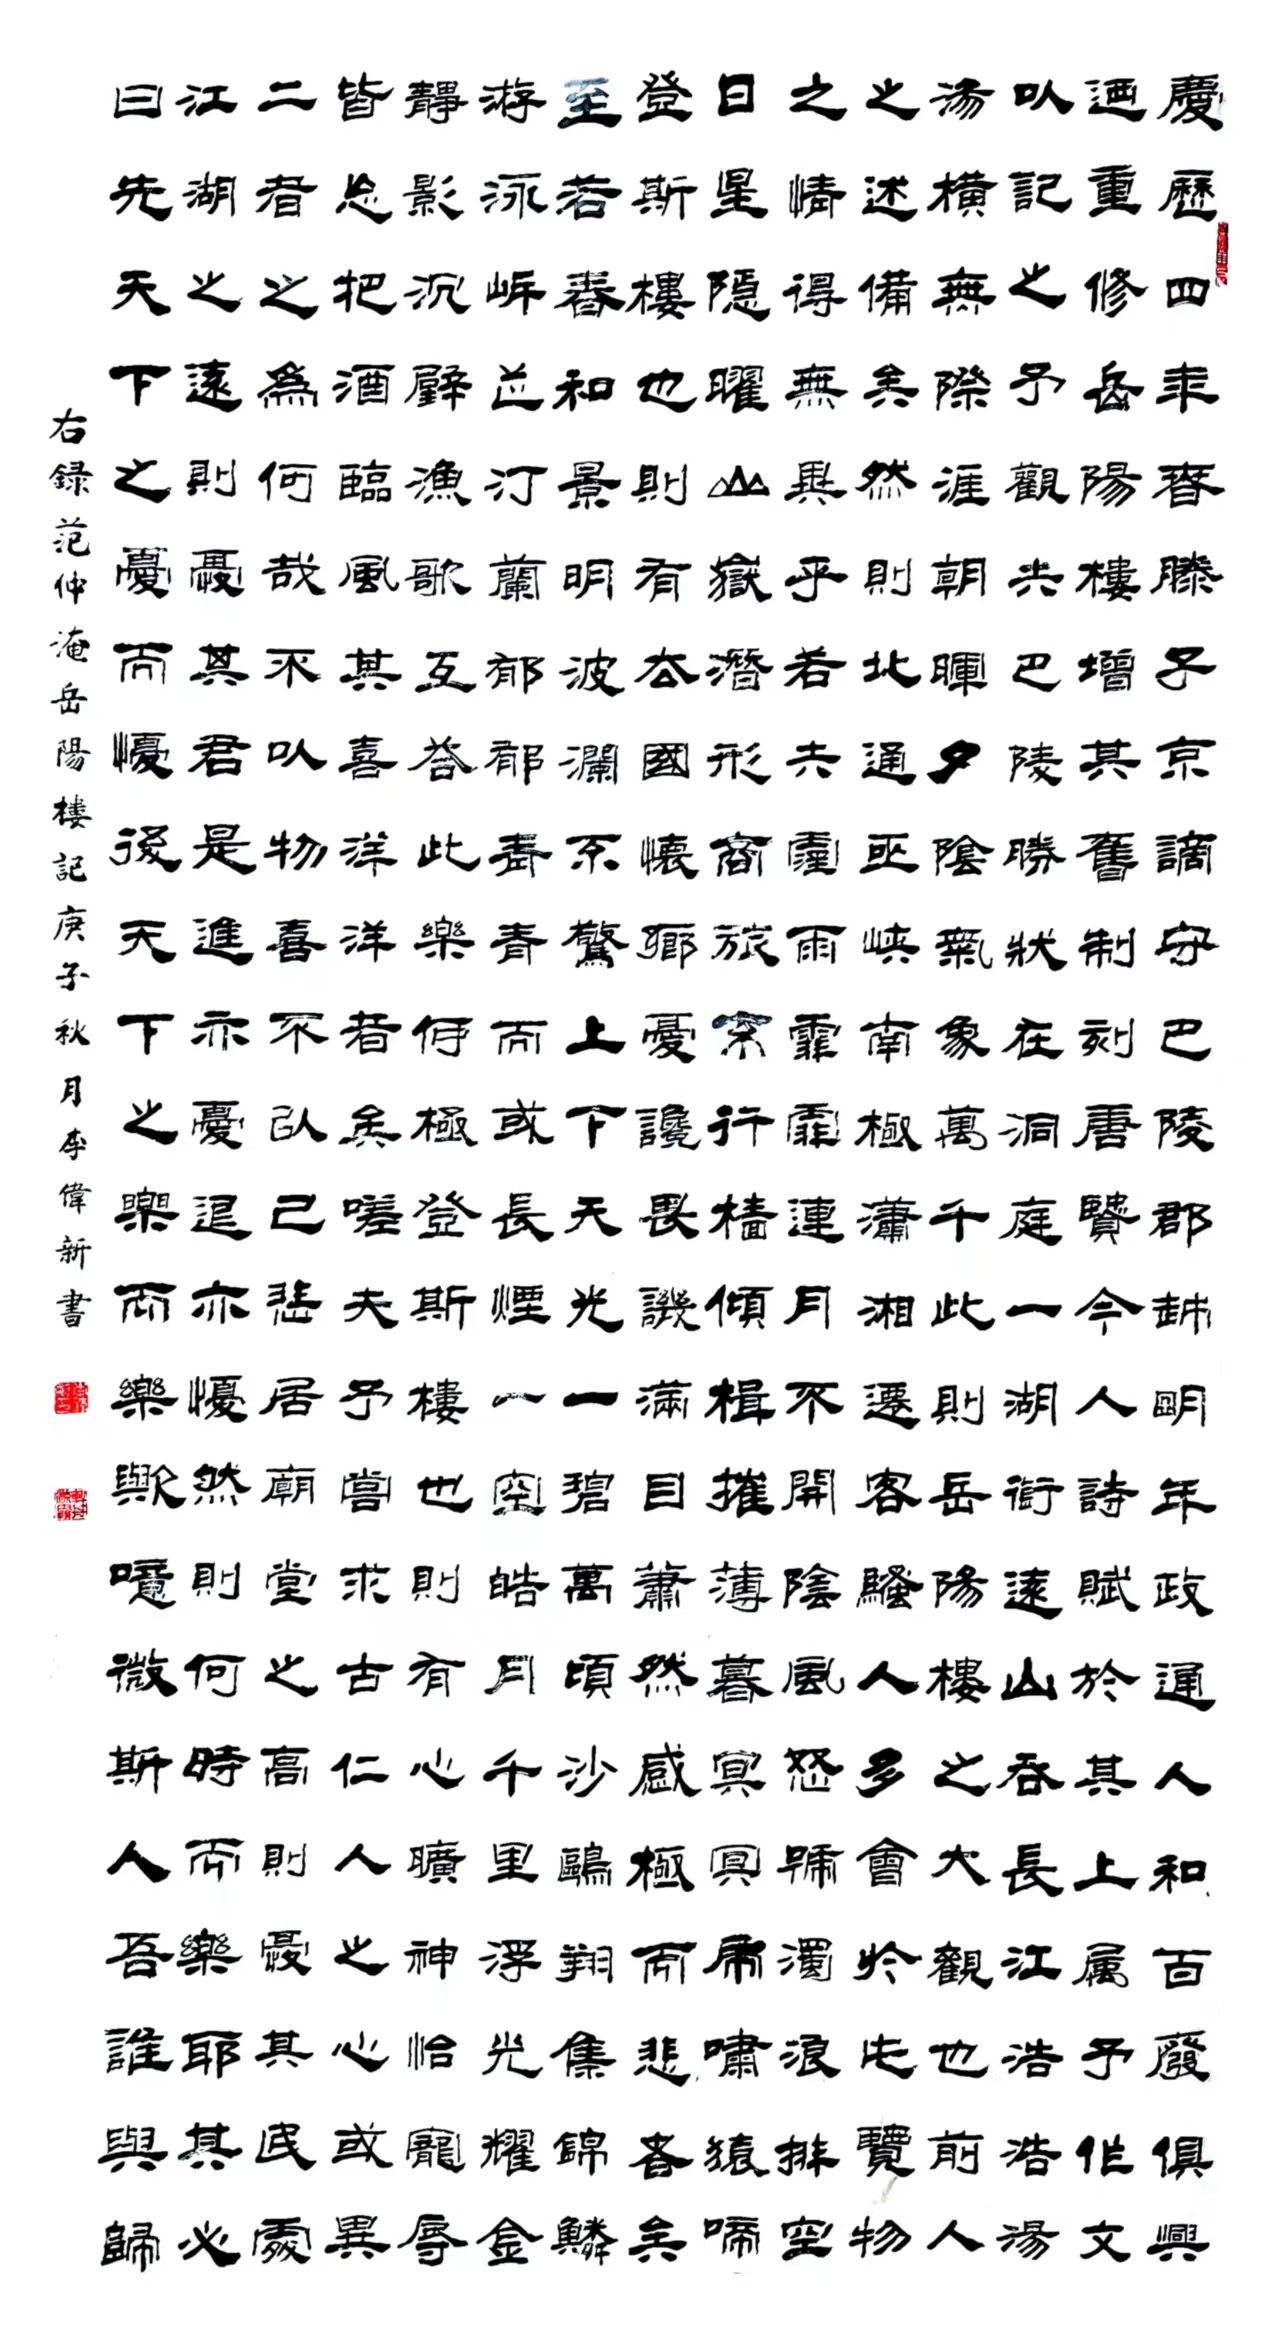 慶歷四年春滕子京謫守巴陵郡越明年政通人和百廢俱興
迺重修岳陽樓增其舊制刻唐賢今人詩賦於其上属予作文
以記之予觀夫巴陵勝狀在洞庭一湖銜遠山吞長江浩浩湯
湯橫無際涯朝暉夕陰氣象萬千此則岳陽樓之大觀也前人
之述備矣然則北通巫峽南極瀟湘遷客騷人多會於此覽物
之情得無異乎若夫霪雨霏霏連月不開陰風怒號濁浪排空
日星隱曜山嶽潛形商旅不行檣傾楫摧薄暮冥冥虎嘯猿啼
登斯樓也則有去國懷鄉憂讒畏譏滿目蕭然感極而悲者矣
至若春和景明波瀾不驚上下天光一碧萬頃沙鷗翔集錦鱗
游泳岸芷汀蘭郁郁青青而或長煙一空皓月千里浮光耀金
靜影沉璧漁歌互答此樂何極登斯樓也則有心曠神怡寵辱
皆忘把酒臨風其喜洋洋者矣嗟夫予嘗求古仁人之心或異
二者之為何哉不以物喜不以己悲居廟堂之高則憂其民處
江湖之遠則憂其君是進亦憂退亦憂然則何時而樂耶其必
曰先天下之憂而憂後天下之樂而樂歟噫微斯人吾誰與歸
右録范仲淹岳陽樓記庚子秋月李偉新書